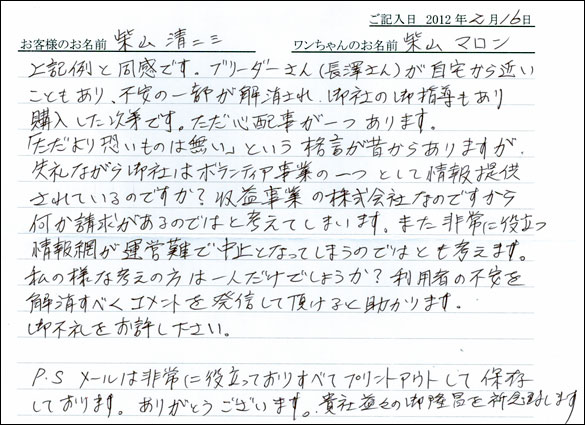 ご記入日 2012年2月16日
お客様のお名前 柴山 清ニミ ワンちゃんのお名前 柴山 マロン
上記例と同感です。ブリーダーさん(長澤さん)が自宅から近い
こともあり、不安の一部が解消され、御社の御指導もあり
購入した次第です。ただ心配事が一つあります。
「ただより恐いものは無い」という格言が昔からありますが、
失礼ながら御社はボランティア事業の一つとして情報提供
されているのですか?収益事業の株式会社なのですから
何か請求があるのではと考えてしまいます。また非常に役立つ
情報網が運営難で中止となってしまうのではとも考えます。
私の様な考えの方は一人だけでしょうか?利用者の不安を
解消すべくコメントを発信して頂けると助かります。
御不礼をお許し下さい。
P.S メールは非常に役立っておりすべてプリントアウトして保存
しております。ありがとうございます。貴社益々の御隆昌を祈念致します